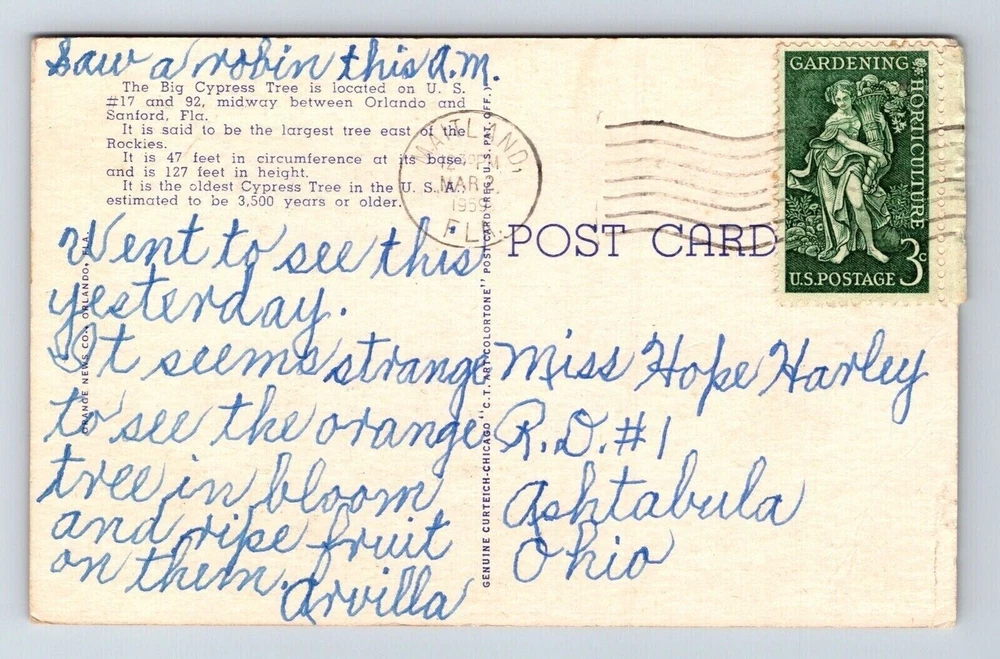 Saw a robin this A.M.
The Big Cypress Tree is located on U. S.
#17 and 92, midway between Orlando and
Sanford, Fla.
It is said to be the largest tree east of the
Rockies.
It is 47 feet in circumference at its base,
and is 127 feet in height.
It is the oldest Cypress Tree in the U. S. A.,
estimated to be 3,500 years or older.
Went to see this
yesterday.
It seems strange
to see the orange
tree in bloom
and ripe fruit
on them.
Arvilla
ORANGE NEWS CO., ORLANDO, FLA.
GENUINE CURTEICH-CHICAGO "C.T. ART-COLORTONE" POST CARD (REG. U.S. PAT. OFF.)
MAITLAND,
PM
MAR 2
1959
FLA.
POST CARD
GARDENING
HORTICULTURE
U.S. POSTAGE 3c
Miss Hope Harley
R.D. #1
Ashtabula
Ohio